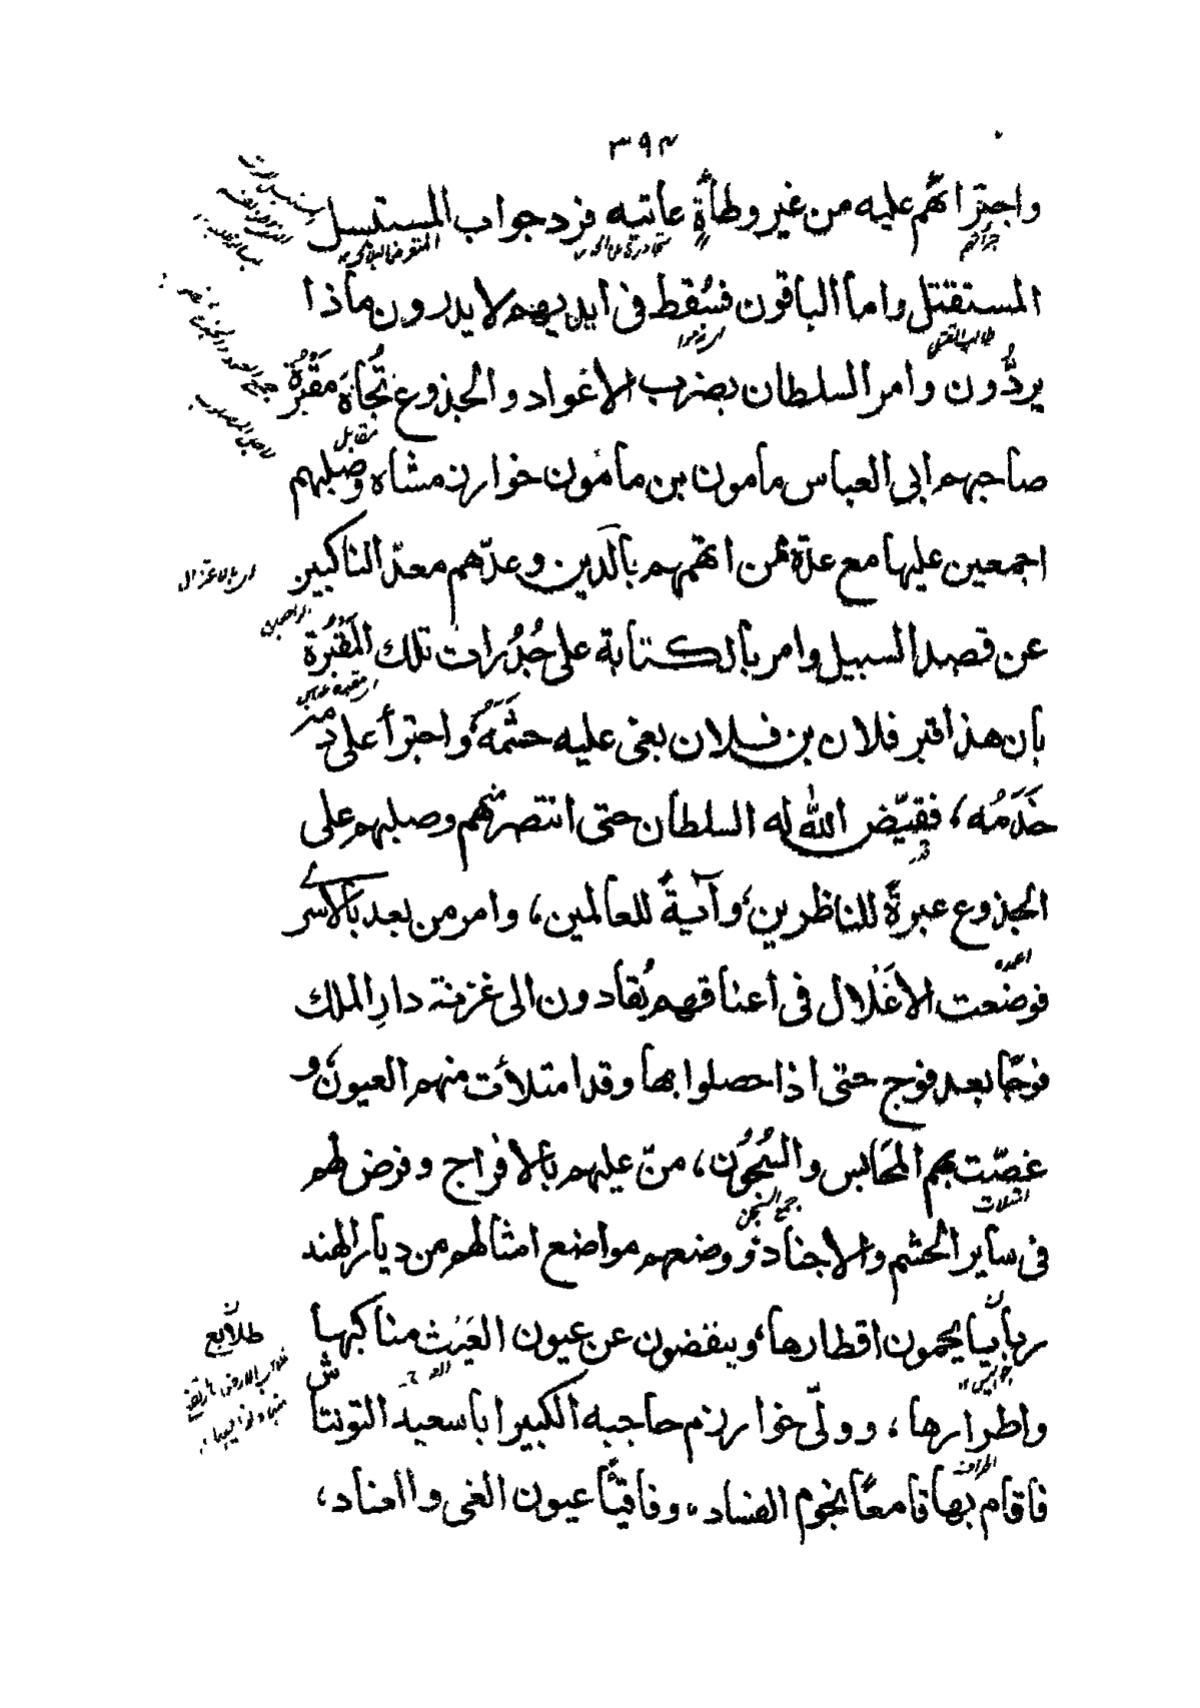 ٣٩٤
واجترائهم عليه من غير وطأةٍ عاتبه فرد جواب المستبسل
جرأتهم
المستقتل واما الباقون فسُقط فى ايديهم لا يدرون ماذا
طالب القتل
يردُّون وامر السلطان بضرب الأعواد والجذوع تُجاهَ مقبرة
مقابل
صاحبهم ابى العباس مامون بن مامون خوارزمشاه وصلبهم
اجمعين عليها مع عدّة ممن اتهمهم بالدين وعدّهم معدّ الناكبين
عن قصد السبيل وامر بالكتابة على جُدُرات تلك المقبُرة
بان هذا قبر فلان بن فلان بغى عليه حشمَه، واجترأ على دمه
خَدَمُه، فقيّض الله له السلطان حتى انتصر منهم وصلبهم على
قدر
الجذوع عبرةً للناظرين، وآيةً للعالمين، وامر من بعد بالأسرى
فوضعت الأغلال فى أعناقهم يُقادون الى غزنة دارِ الملك
فوجًا بعد فوج حتى اذا حصلوا بها وقد امتلأت منهم العيون، و
غصّت بهم المحَابس والسُجُون، منّ عليهم بالافراج وفرض لهم
امتلات
جمع السجن
فى ساير الحشم والاجناد، ووضعهم مواضع امثالهم من ديار الهند
ربايا يحمون اقطارها، وينفضون عن عيون العَيَث مناكبها
طلايع
واطرارها، وولّى خوارزم حاجبه الكبير ابا سعيد التونتاش
اطرافه
فاقام بها قامعًا لنجوم الفساد، وفاقئًا عيون الغى والعناد،